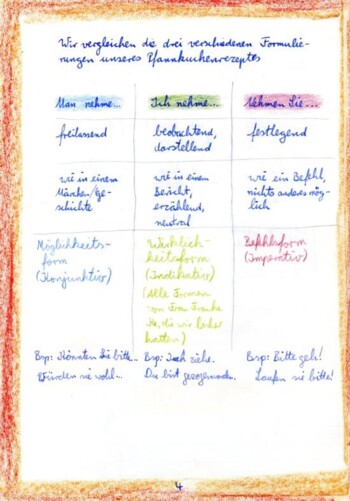 Wir vergleichen die drei verschiedenen Formulie-
rungen unseres Pfannkuchenrezeptes
Man nehme...
Ich nehme...
Nehmen Sie...
freilassend
beobachtend,
darstellend
festlegend
wie in einem
Märchen/Ge-
schichte
wie in einem
Bericht,
erzählend,
neutral
wie ein Befehl,
nichts anderes mög-
lich
Möglichkeits-
form
(Konjunktiv)
Wirklich-
keitsform
(Indikativ)
(Alle Formen
von Frau Franke
die wir bisher
hatten)
Befehlsform
(Imperativ)
Bsp: Könnten Sie bitte...
Würden sie wohl...
Bsp: Ich ziehe.
Du bist gezogen
Bsp: Bitte geh!
Laufen sie bitte!
4